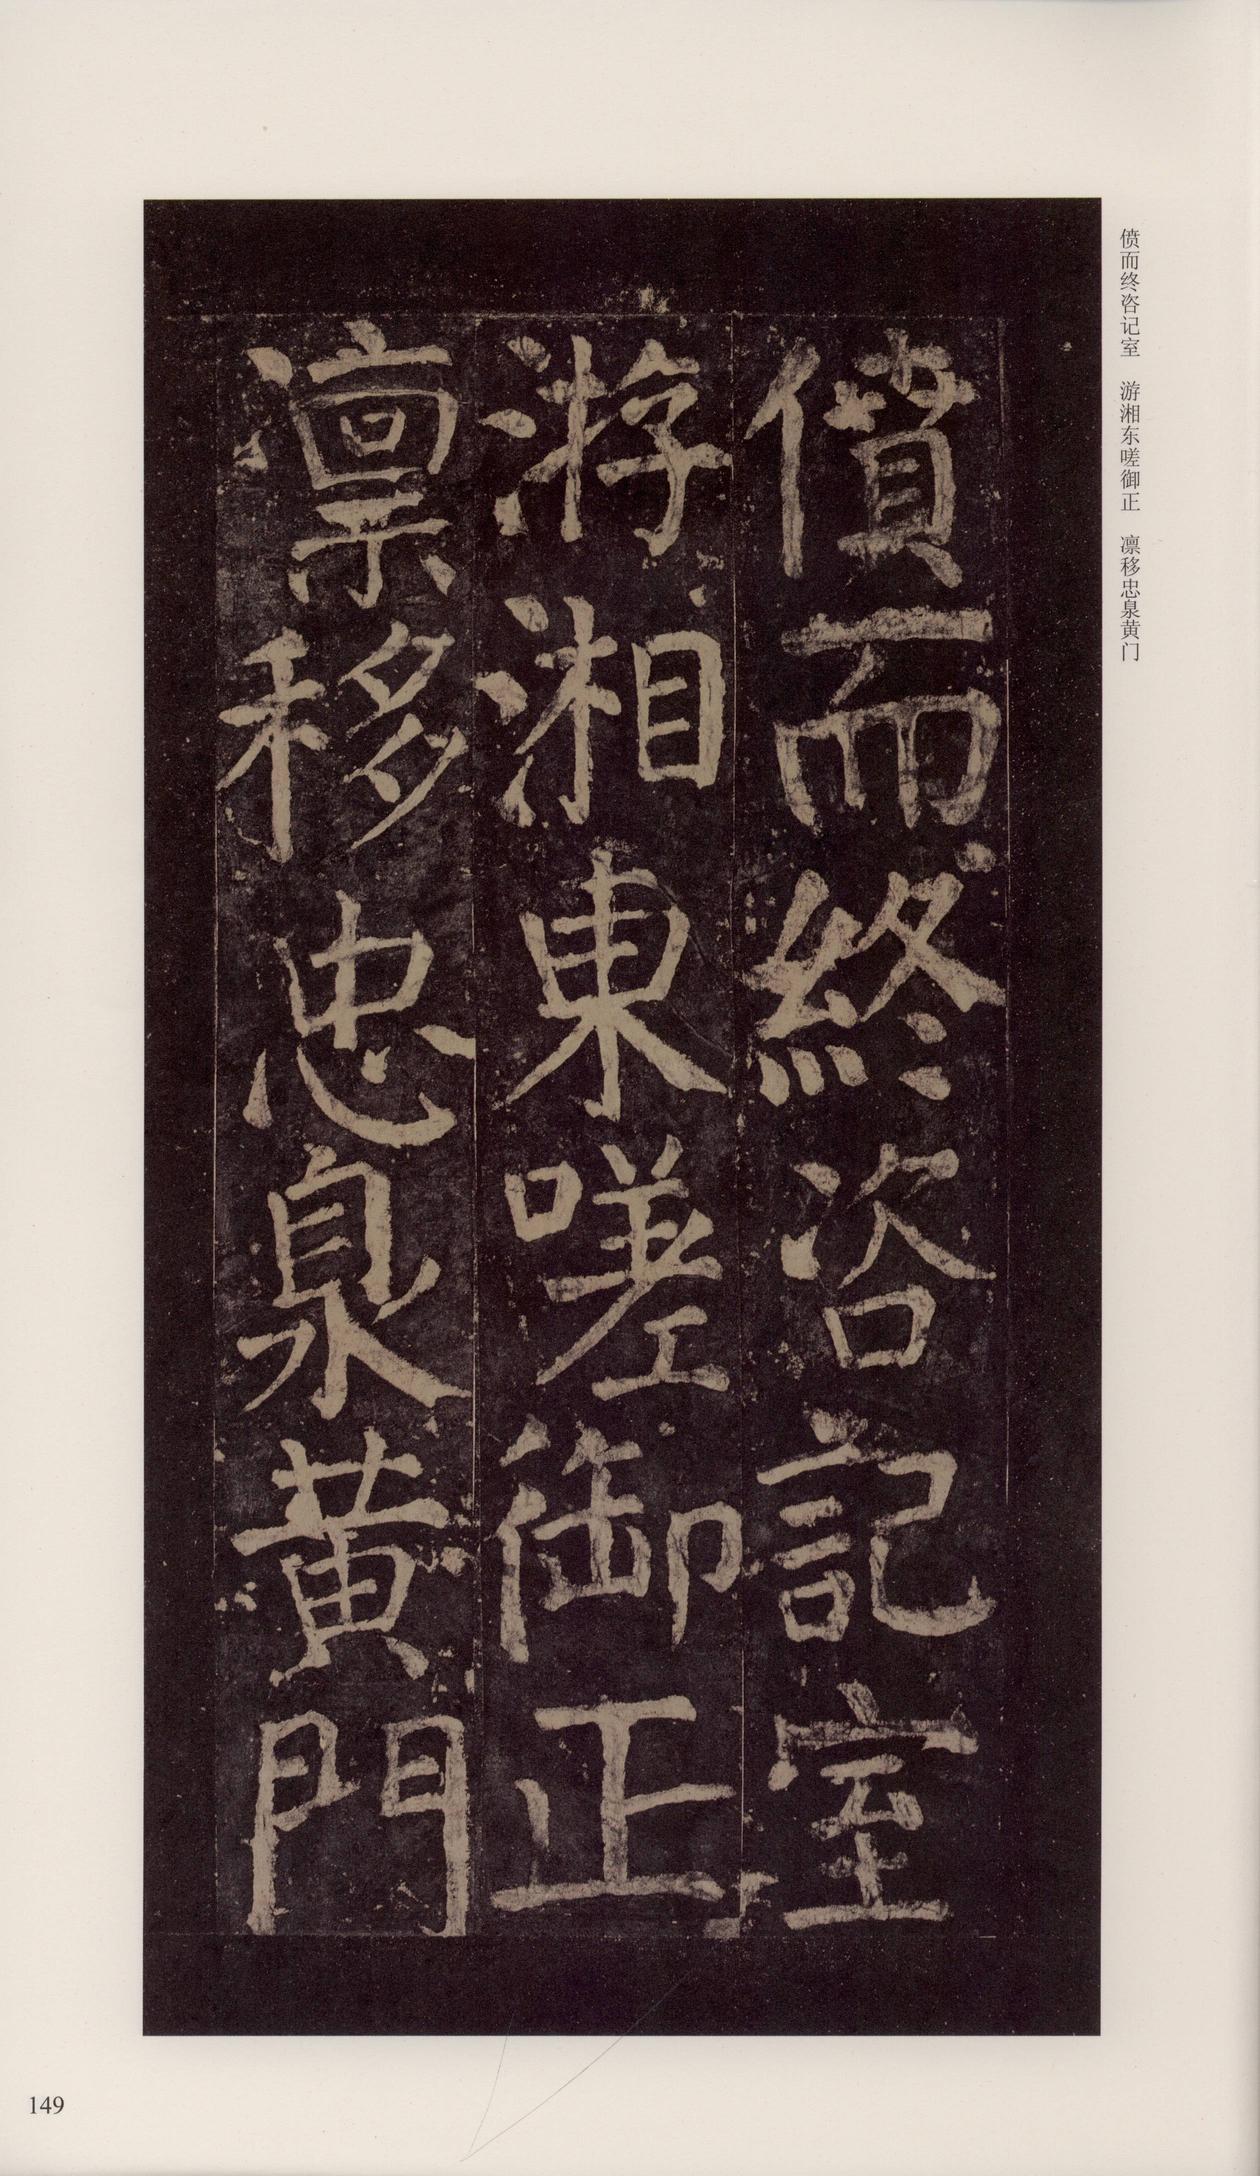 偾而终咨记室　游湘东嗟御正　凛移忠泉黄门
僨而終咨記室
游湘東嗟御正
凛移忠泉黄門
149